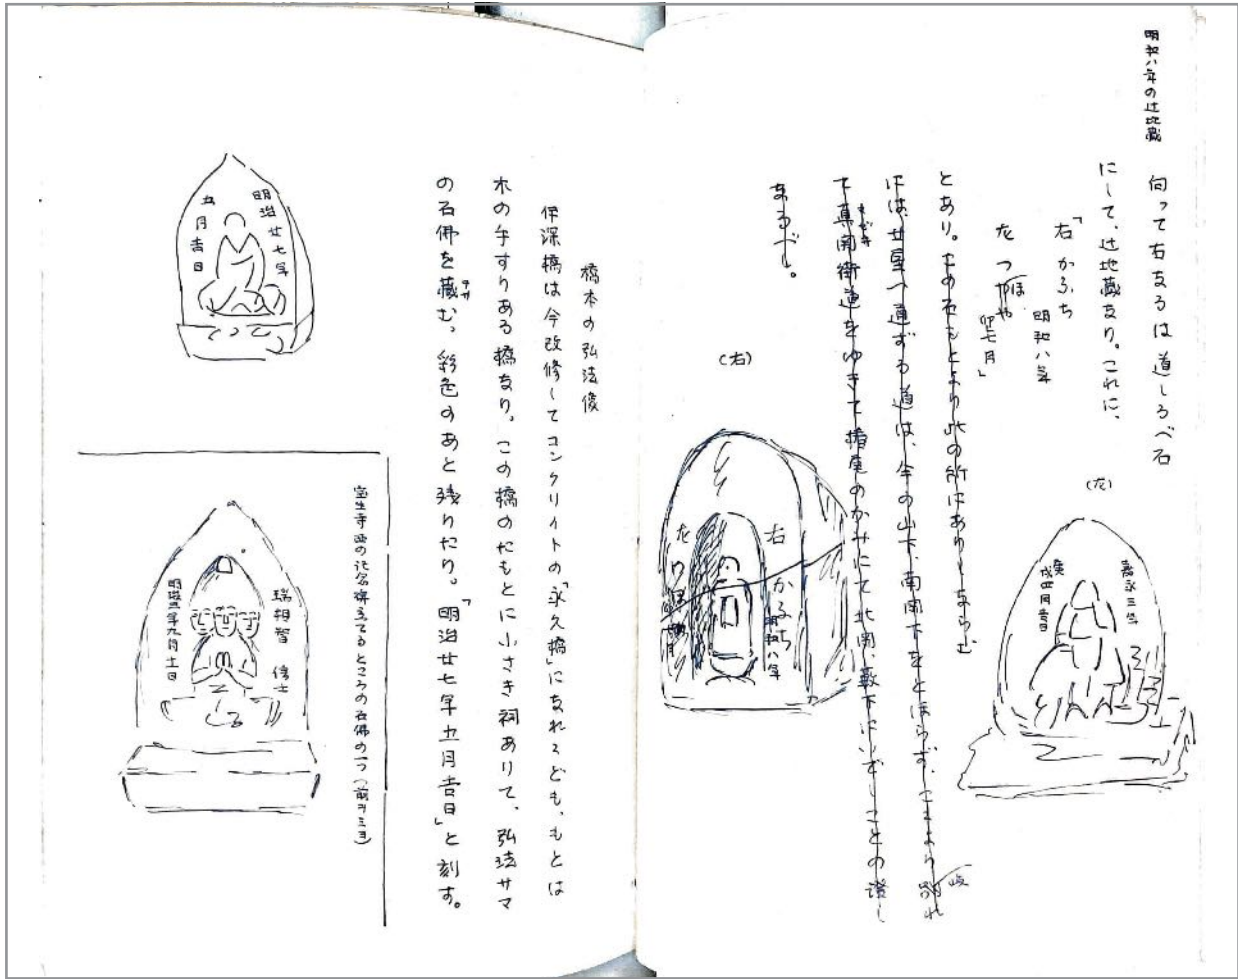 明和八年の辻地蔵
向って右なるは道しるべ石
にして、辻地蔵なり。これに、
「右 かふち
明和八年
左 つほや
卯七月」
とあり。この石もとより此の所にありしならむ
には、廿屋へ通ずる道は、今の山下、南岡下をとほらず、こゝより岐れ
て真関街道をゆきて
のかみにて北岡、藪下にいでしことの證し
なるべし。
(左)
嘉永三年
庚戌四月吉日
(右)
右 かふち
明和八年
左 つほ
橋本の弘法像
伊深橋は今改修してコンクリイトの「永久橋」になれゝども、もとは
木の手すりある橋なり。この橋のたもとに小さき祠ありて、弘法サマ
の石佛を蔵む。彩色のあと残りたり。「明治廿七年五月吉日」と刻す。
明治廿七年
五月吉日
宝生寺西の記念碑立てるところの石佛の一つ(前ヲミヨ)
瑞相智 信士
九月十一日